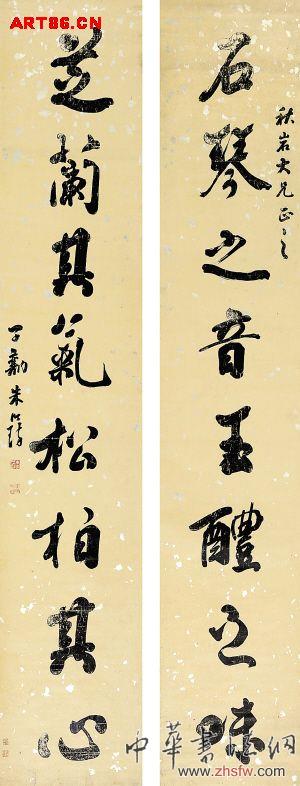 ART86.CN
秋岩大兄正之
石琴之音玉醴之味
芝蘭其氣松柏其心
朱
中華書法網
www.zhsfw.com